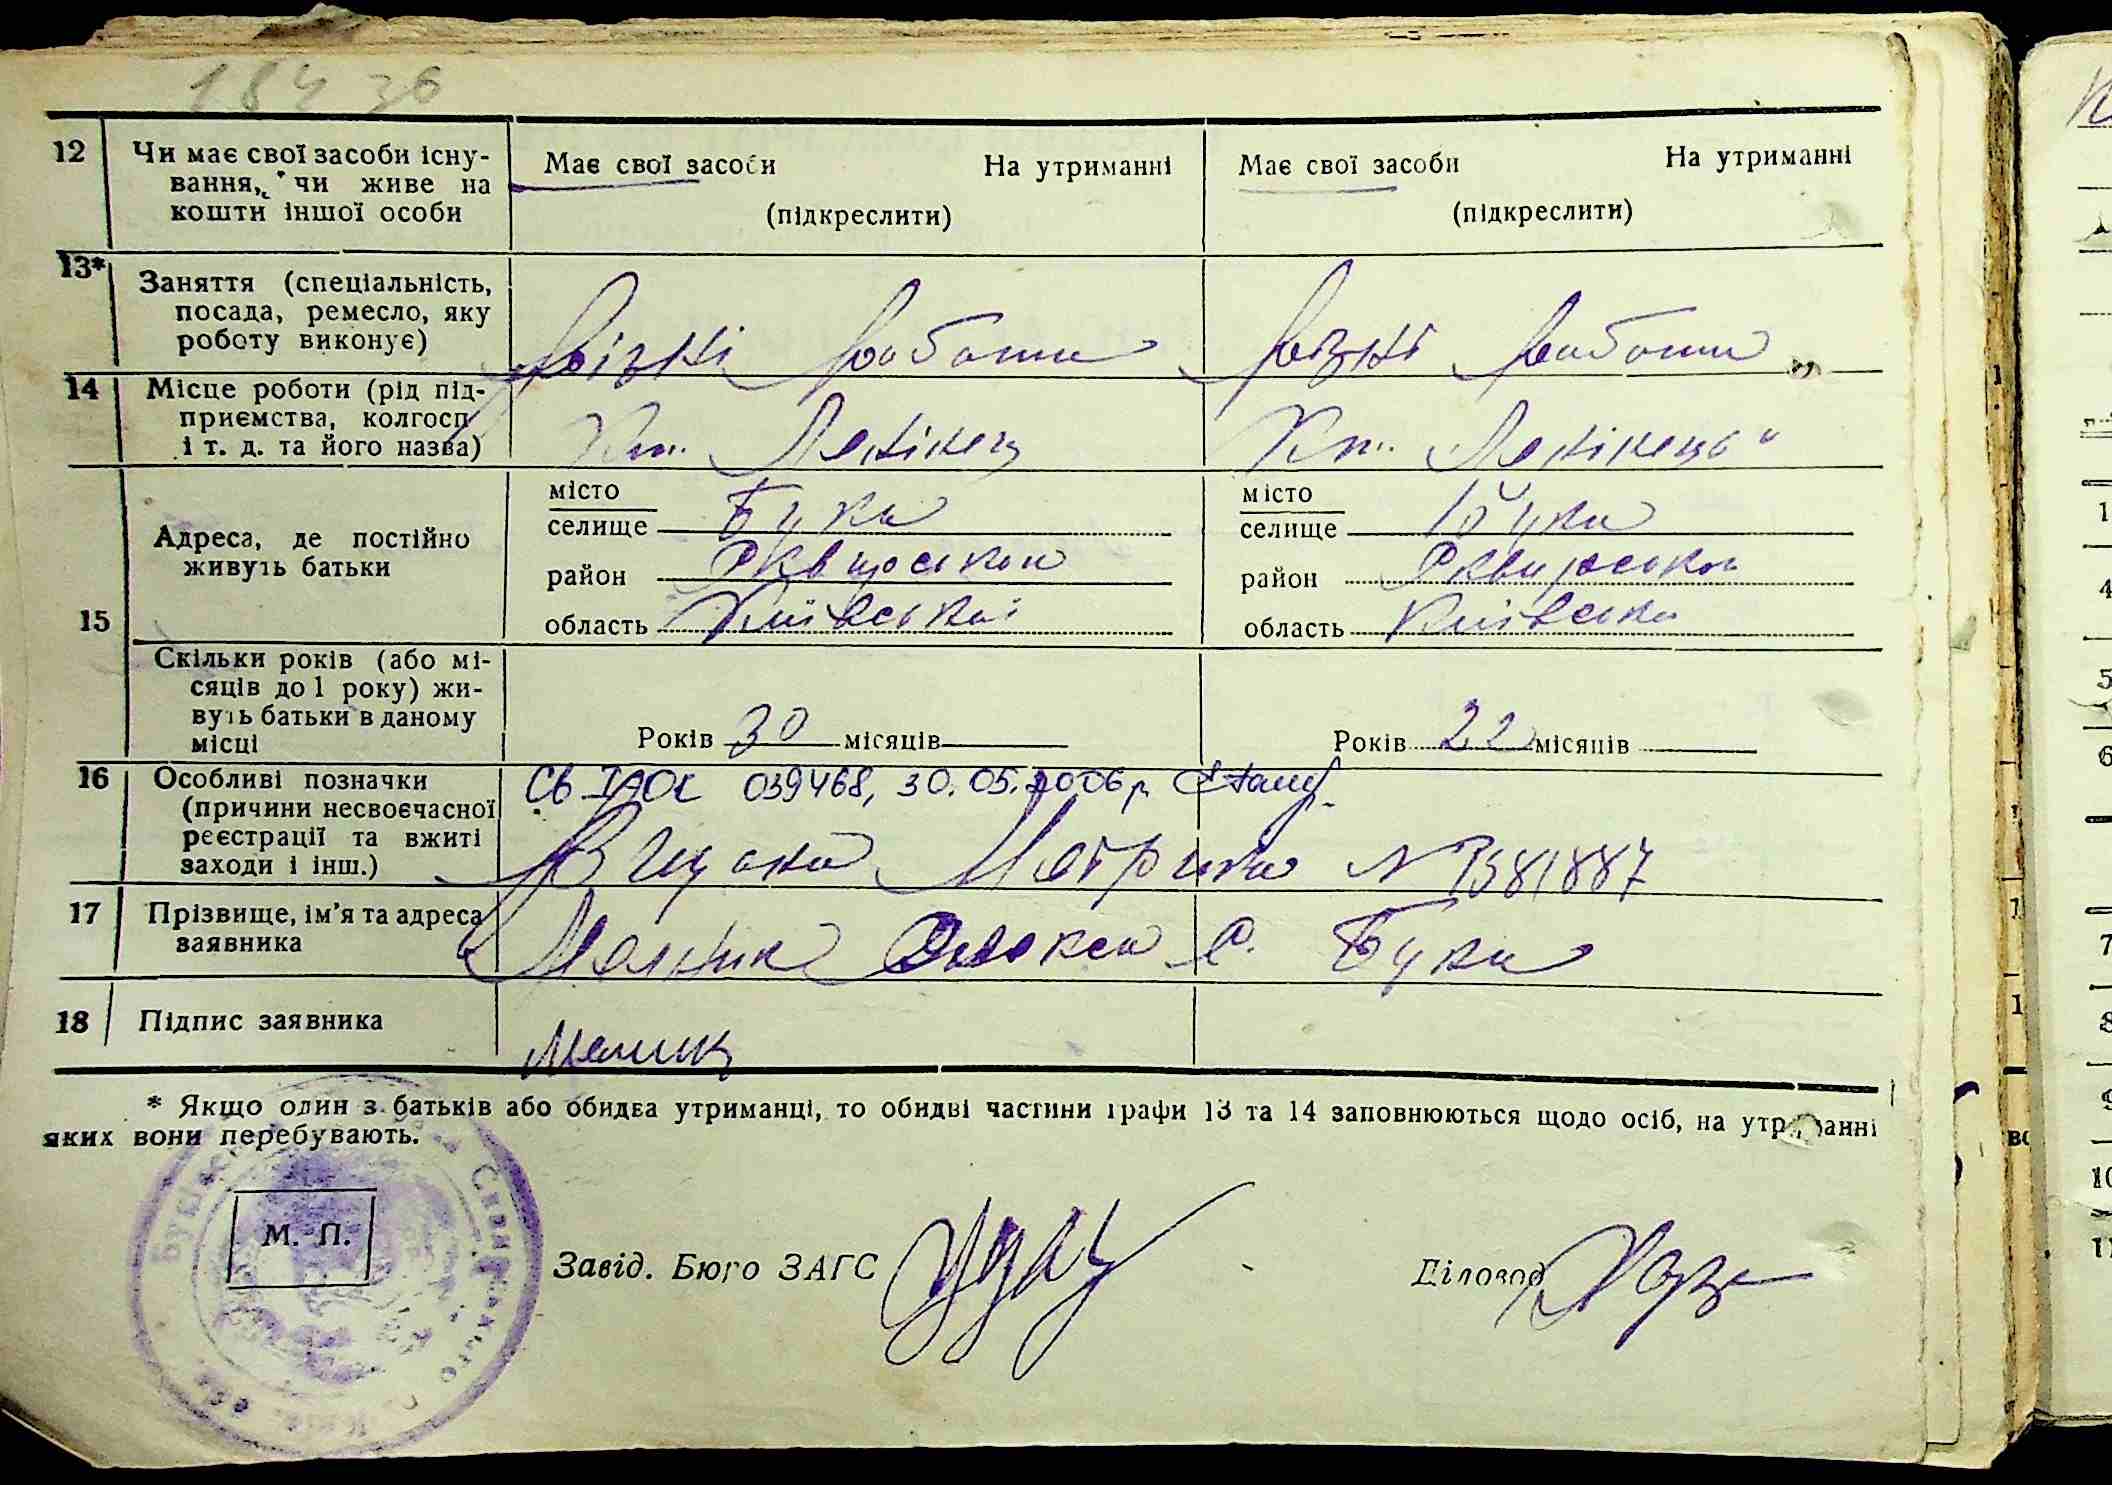 184 зв
12 Чи має свої засоби існу-
вання, чи живе на
кошти іншої особи
Має свої засоби На утриманні
(підкреслити)
Має свої засоби На утриманні
(підкреслити)
13* Заняття (спеціальність,
посада, ремесло, яку
роботу виконує)
Різні работи
Різні работи
14 Місце роботи (рід під-
приємства, колгосп
і т. д. та його назва)
Ленінец
Ленінець"
15 Адреса, де постійно
живуть батьки
місто
селище Буки
район Сквирською
область Київської
місто
селище Буки
район Сквирської
область Київська
Скільки років (або мі-
сяців до 1 року) жи-
вуть батьки в даному
місці
Років 30 місяців
Років 22 місяців
16 Особливі позначки
(причини несвоєчасної
реєстрації та вжиті
заходи і інш.)
039468, 30.05.2006 р.
Видана Метрика № 1381887
17 Прізвище, ім'я та адреса
заявника
Мельник Олекса с. Буки
18 Підпис заявника
* Якщо один з батьків або обидва утриманці, то обидві частини графи 13 та 14 заповнюються щодо осіб, на утриманні
яких вони перебувають.
М. П.
Завід. Бюро ЗАГС
Діловод